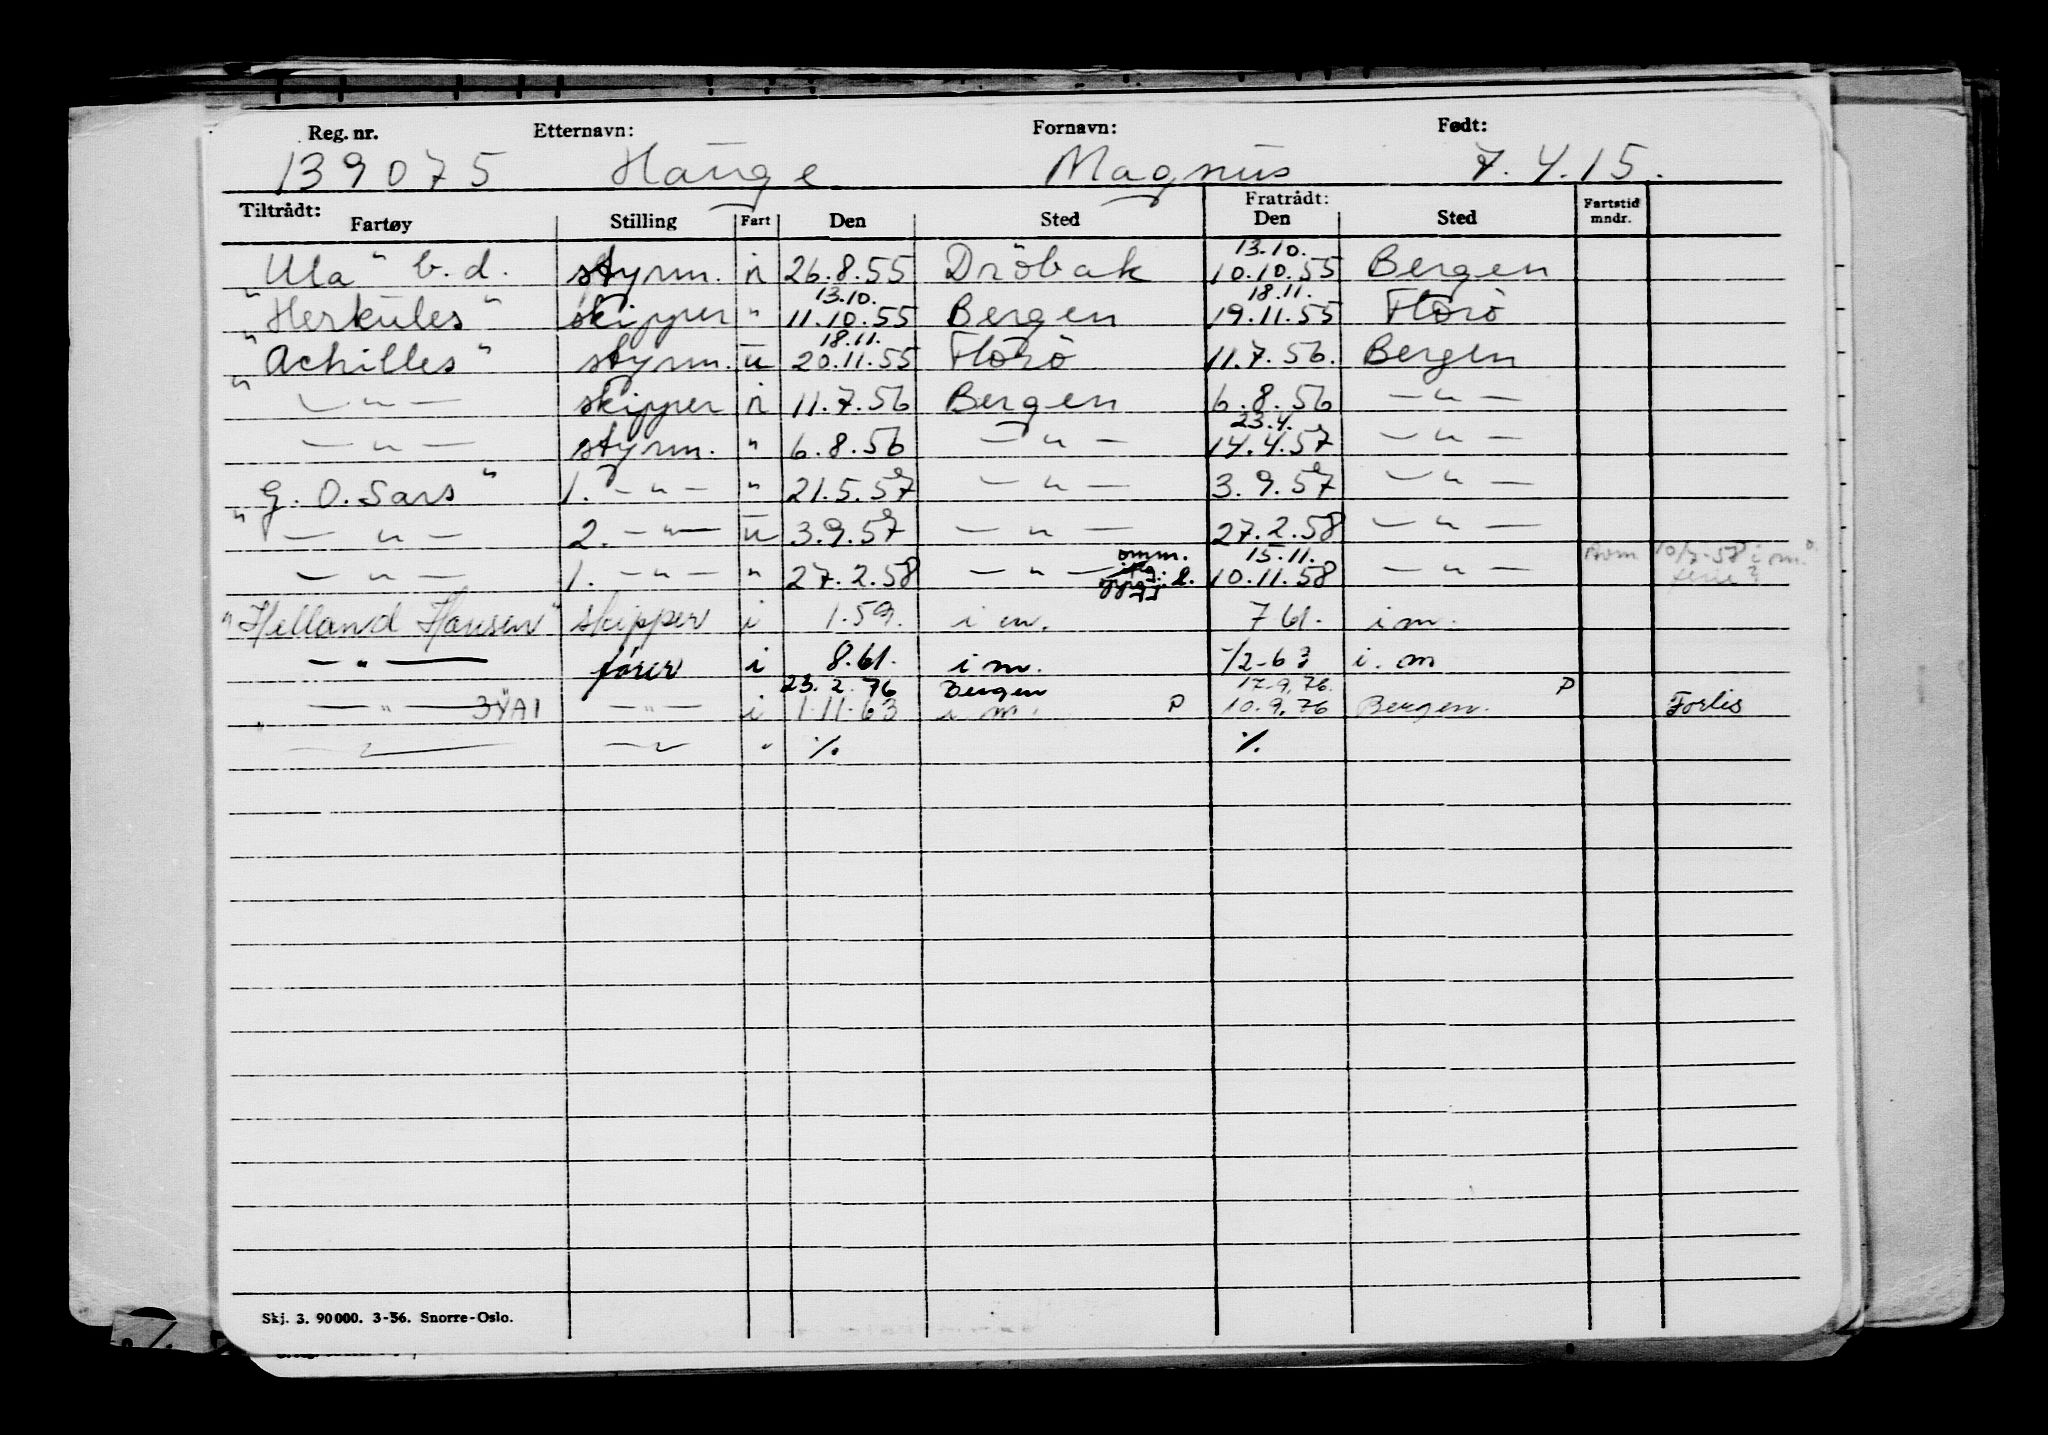 Reg. nr. Etternavn: Fornavn: Født:
139075 Hauge Magnus 7.4.15.
Tiltrådt: Fratrådt: Fartstid mndr.
Fartøy Stilling Fart Den Sted Den Sted
13.10.
"Ula" b.d. styrm. n 26.8.55 Dröbak 10.10.55 Bergen
13.10. 18.11.
"Herkules" skipper " 11.10.55 Bergen 19.11.55 Florö
18.11.
"Achilles" styrm. u 20.11.55 Florö 11.7.56. Bergen
— " — skipper n 11.7.56 Bergen 6.8.56 — " —
23.4.
— " — styrm. " 6.8.56 — " — 14.4.57 — " —
"G.O. Sars" 1. — " — " 21.5.57 — " — 3.9.57 — " —
— " — 2. — " — u 3.9.57 — " — 27.2.58 — " —
omm. 15.11.
— " — 1. — " — " 27.2.58 — " — 10.11.58 — " — 10/7-58 i m.
"Helland Hansen" skipper i 1.59. i m. 7 61. i m.
— " — fører i 8.61. i m. -/2-63 i. m
23.2.76 Bergen 17.9.76. P
— " — 3YAI — " — i 1.11.63 i m. P 10.9.76 Bergen. Forlis
— " — — " — " %. %.
Skj. 3. 90000. 3-56. Snorre-Oslo.